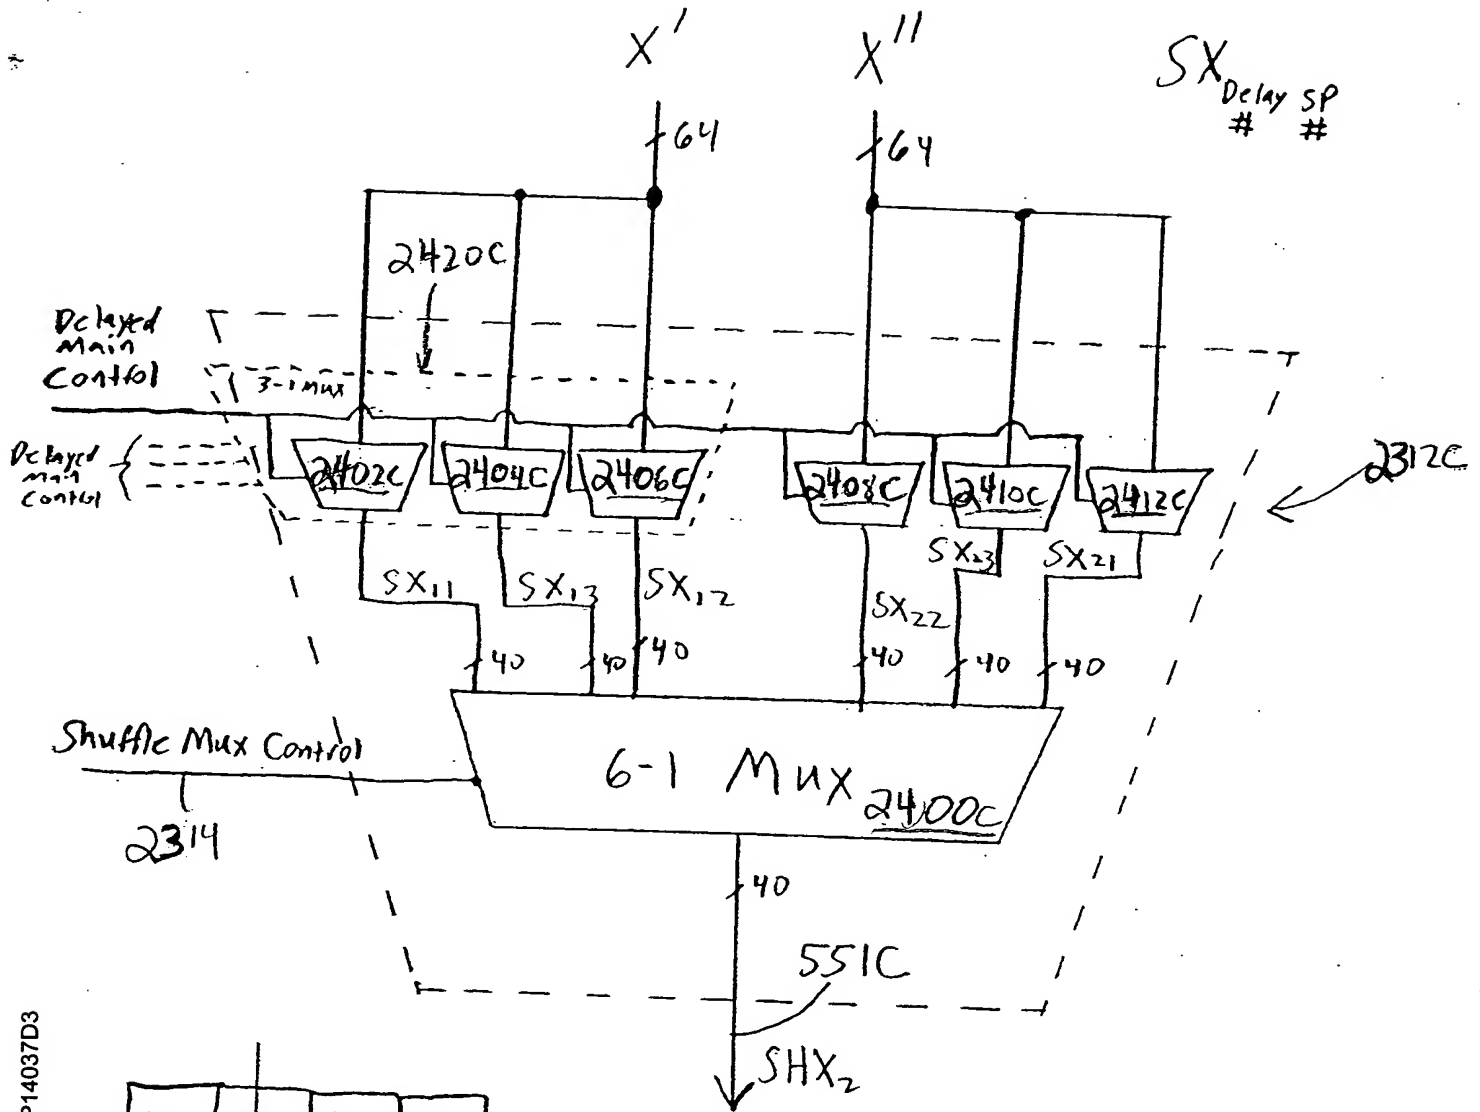 X' X'' SX Delay # SP #
64 64
2420C
Delayed
Main
Control
3-1 mux
Delayed
Main
Control
2402C 2404C 2406C 2408C 2410C 2412C
2312C
SX11 SX13 SX12 SX22 SX23 SX21
40 40 40 40 40 40
Shuffle Mux Control
2314
6-1 Mux 2400C
40
551C
SHX2
P14037D3